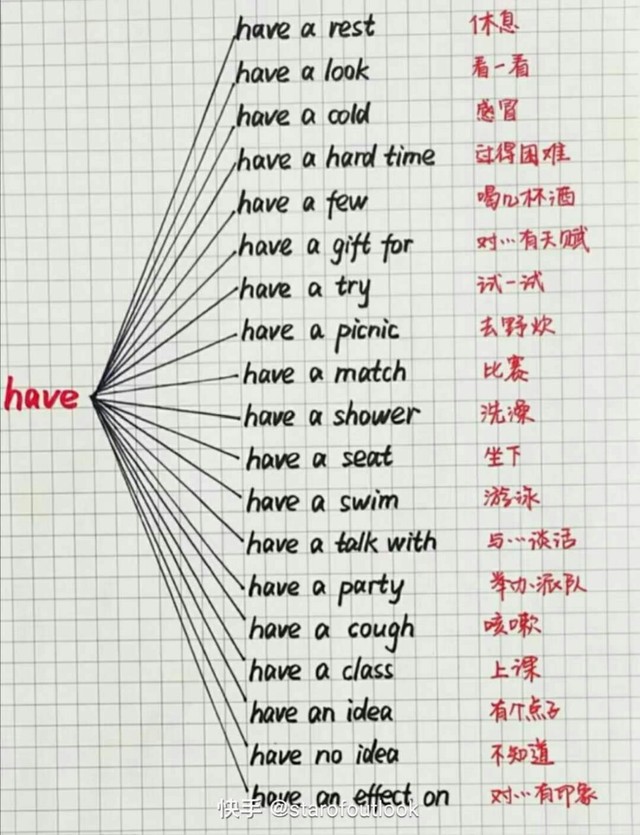 have a rest 休息
have a look 看一看
have a cold 感冒
have a hard time 过得困难
have a few 喝几杯酒
have a gift for 对…有天赋
have a try 试一试
have a picnic 去野炊
have a match 比赛
have
have a shower 洗澡
have a seat 坐下
have a swim 游泳
have a talk with 与…谈话
have a party 举办派队
have a cough 咳嗽
have a class 上课
have an idea 有个点子
have no idea 不知道
have an effect on 对…有印象
快手 @starofoutlook